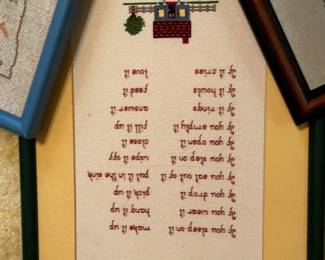 If you sleep on it make it up
If you wear it hang it up
If you drop it pick it up
If you eat out of it put it in the sink
If you step on it wipe it off
If you open it close it
If you empty it fill it up
If it rings answer it
If it howls feed it
If it cries love it